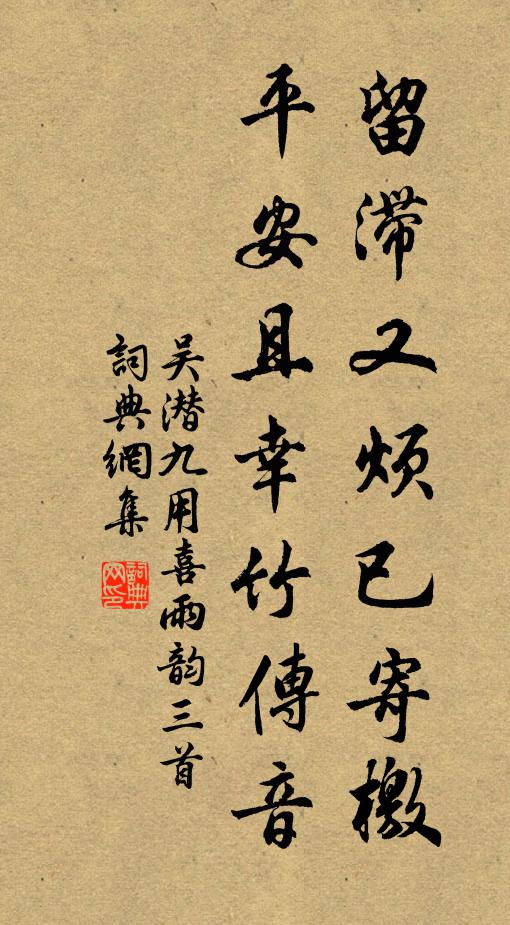 留滯又煩已寄檄
平安且幸竹傳音
吴潜九用喜雨韵三首
詞典網集
詞典網印